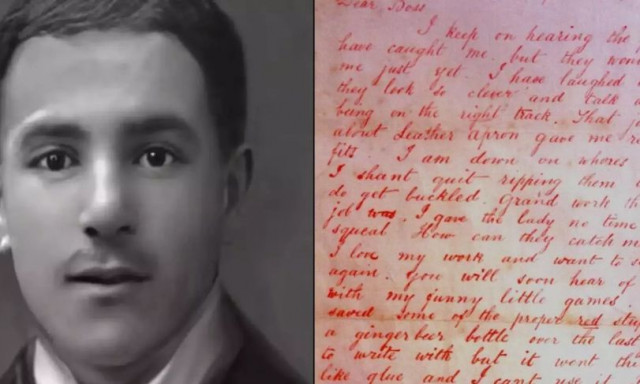 Dear Boss
I keep on hearing the
have caught me but they won
me just yet. I have laughed
they look so clever and talk
being on the right track. That jo
about Leather apron gave me re
fits. I am down on whores
I shant quit ripping them
do get buckled. Grand work th
job was. I gave the lady no time
squeal. How can they catch me
I love my work and want to s
again. You will soon hear of
with my funny little games.
saved some of the proper red stuf
a ginger beer bottle over the last
to write with but it went thi
like glue and I cant use it